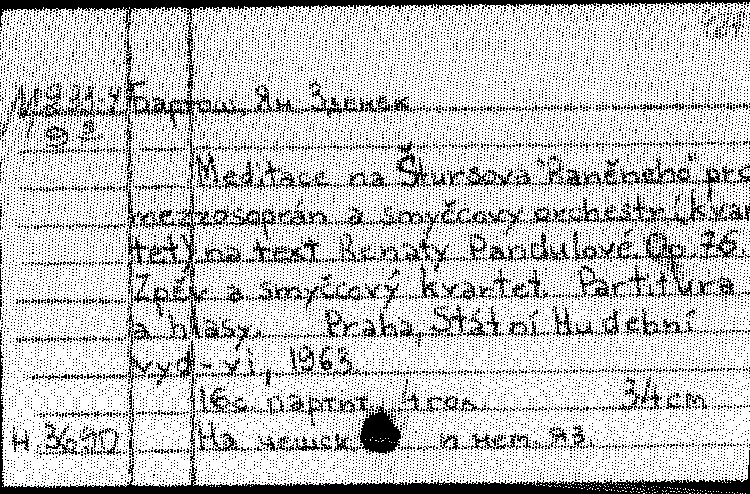 Бартош, Ян Зденек
Ф 3
Meditace na Štursova "Raněneho" pro
mezzosoprán a smyčcový orchestr (kvar
tet) na text Renaty Pandulové Op. 76.
Zpěv a smyčcový kvartet. Partitura
a hlasy. Praha, Státní Hudební
vyd-ví, 1963.
16 с. партит., 4 гол. 34 cm
Н 3690 На чешск. и нем. яз.